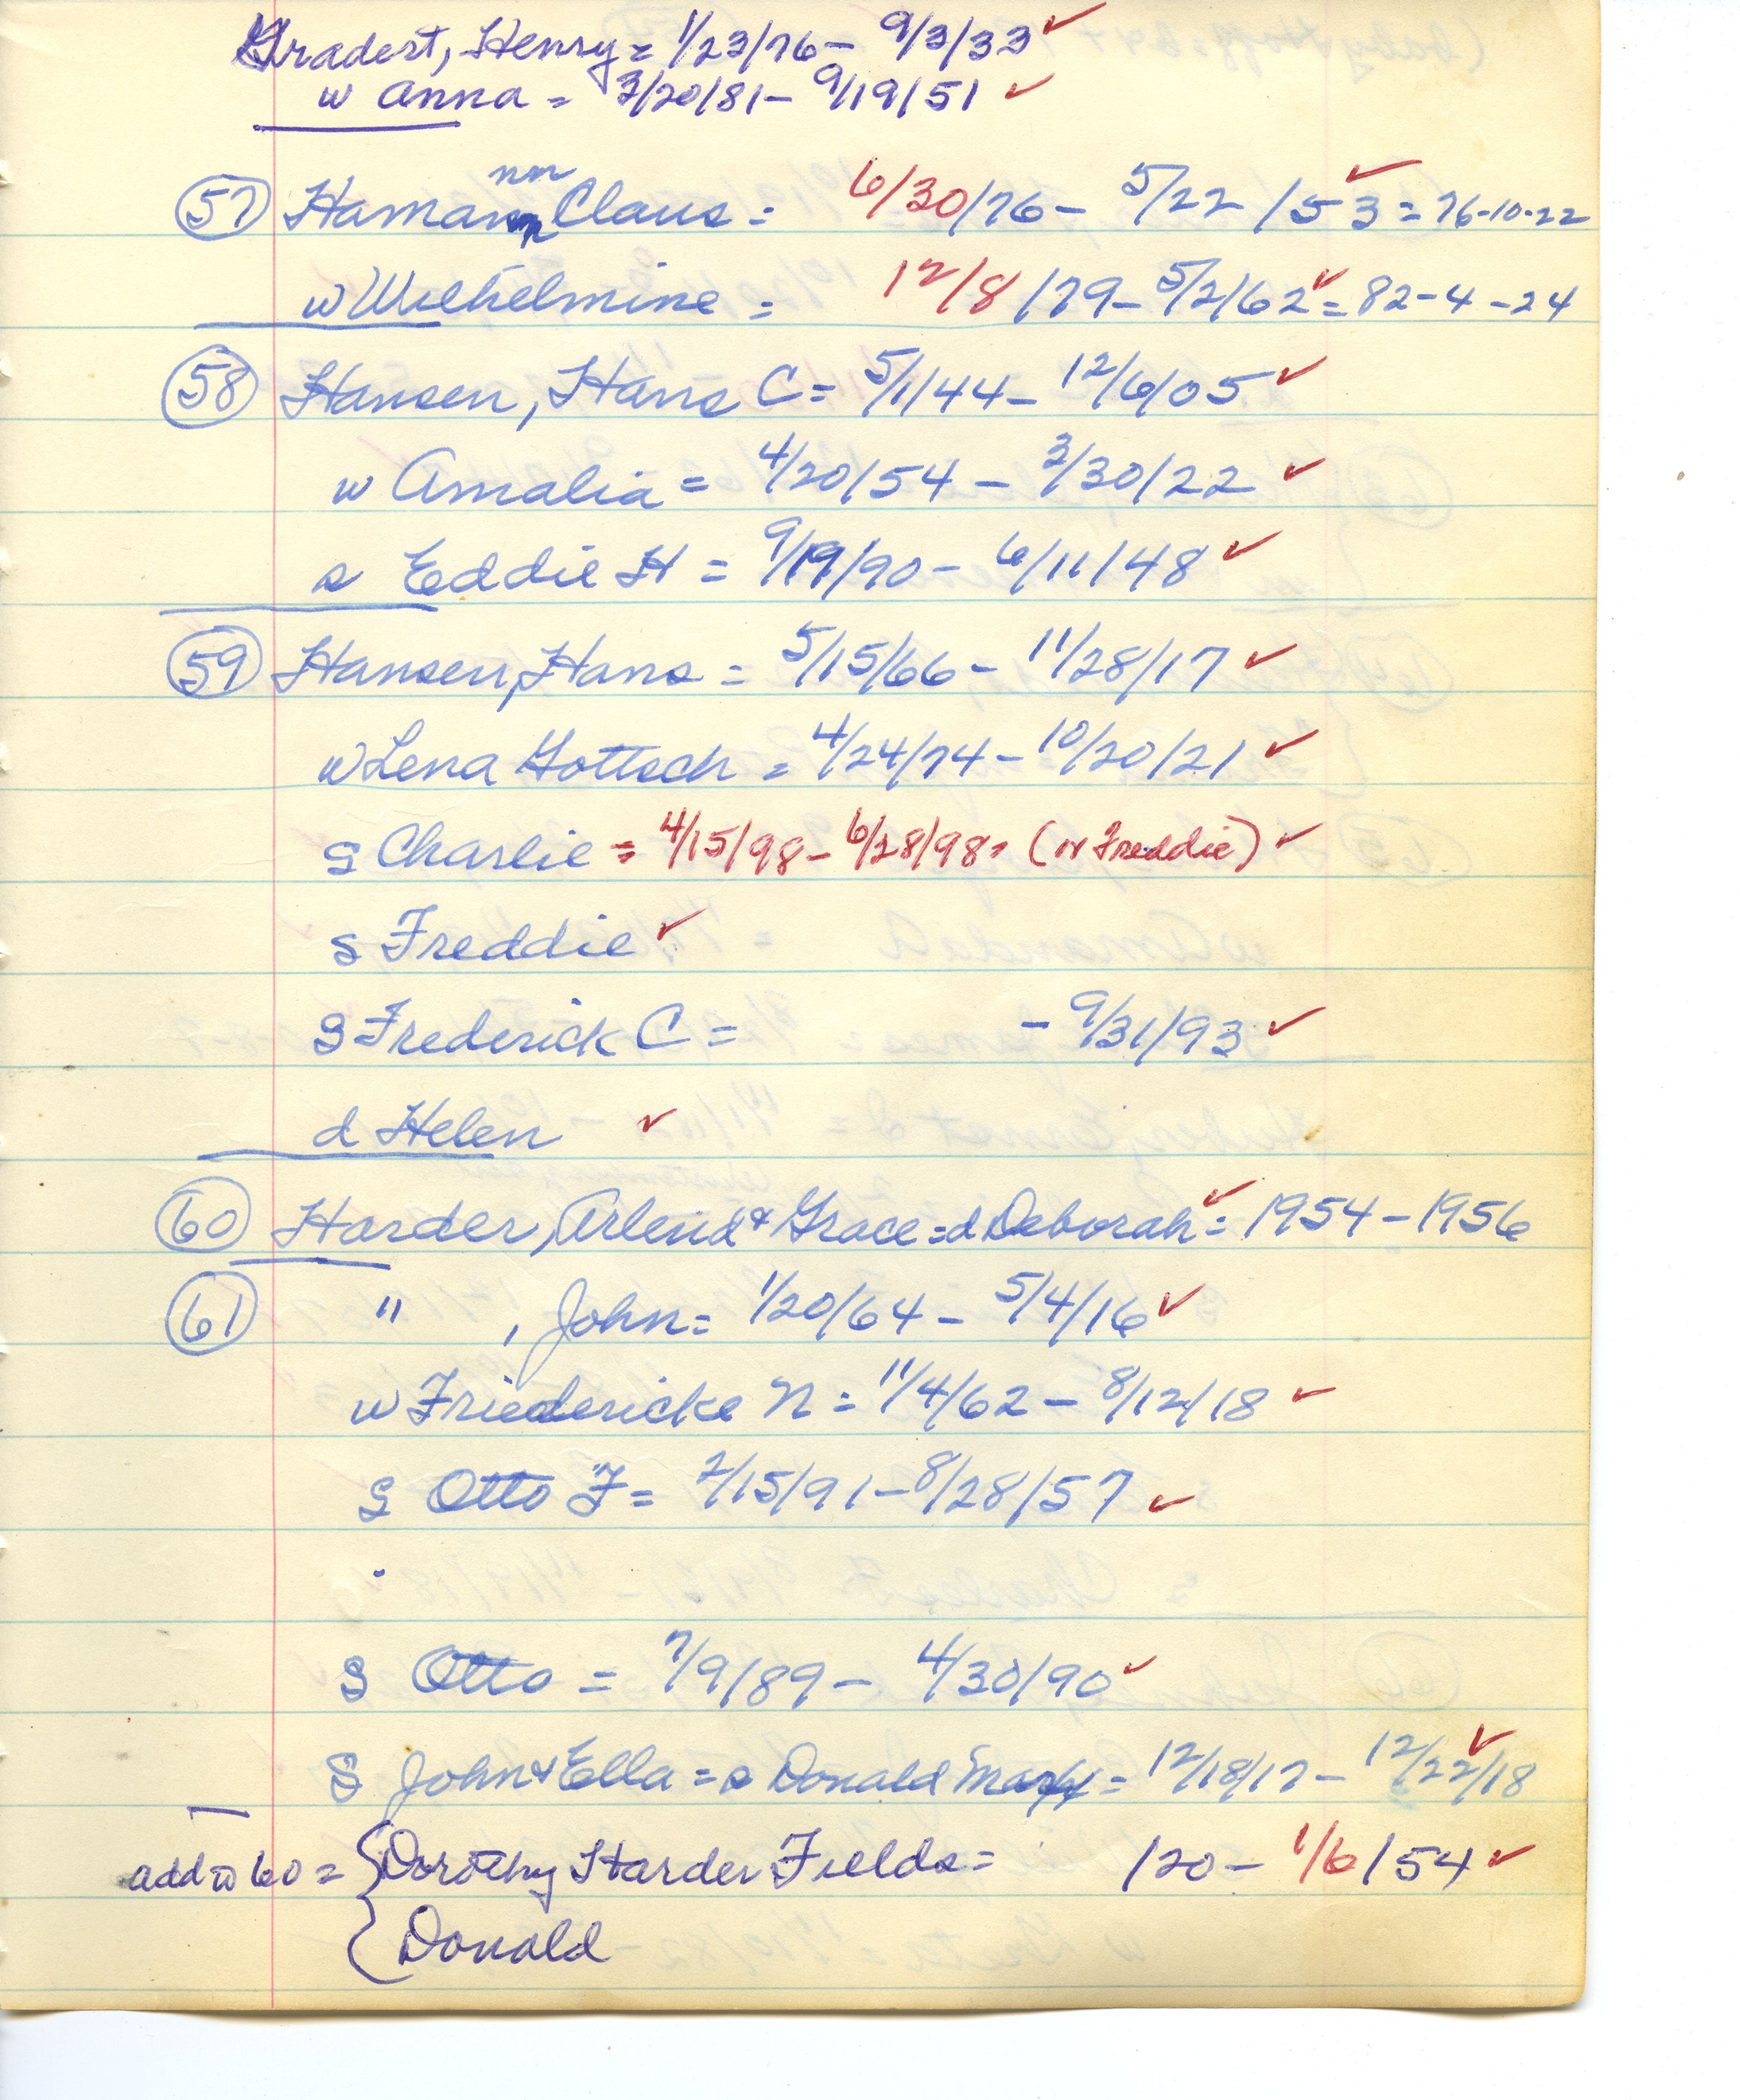 Gradert, Henry = 1/23/76 - 9/3/33 ✓
w Anna = 3/20/81 - 9/19/51 ✓
nn
57 Hamann Claus = 6/30/76 - 5/22/53 = 76-10-22 ✓
w Wilhelmine = 12/8/79 - 5/2/62 ✓ = 82-4-24
58 Hansen, Hans C = 5/1/44 - 12/6/05 ✓
w Amalia = 4/20/54 - 3/30/22 ✓
s Eddie H = 9/19/90 - 6/11/48 ✓
59 Hansen, Hans = 5/15/66 - 11/28/17 ✓
w Lena Gottsch = 4/24/74 - 10/20/21 ✓
s Charlie = 4/15/98 - 6/28/98 = (or Freddie) ✓
s Freddie ✓
s Frederick C = - 9/31/93 ✓
d Helen ✓
60 Harder, Arlend & Grace = d Deborah ✓ = 1954 - 1956
61 " , John = 1/20/64 - 5/4/16 ✓
w Friedericke N = 11/4/62 - 8/12/18 ✓
s Otto F = 2/15/91 - 8/28/57 ✓
s Otto = 7/9/89 - 4/30/90 ✓
s John & Ella = s Donald Mark = 12/18/17 - 12/22/18 ✓
add to 60 = { Dorothy Harder Fields = /20 - 1/6/54 ✓
{ Donald